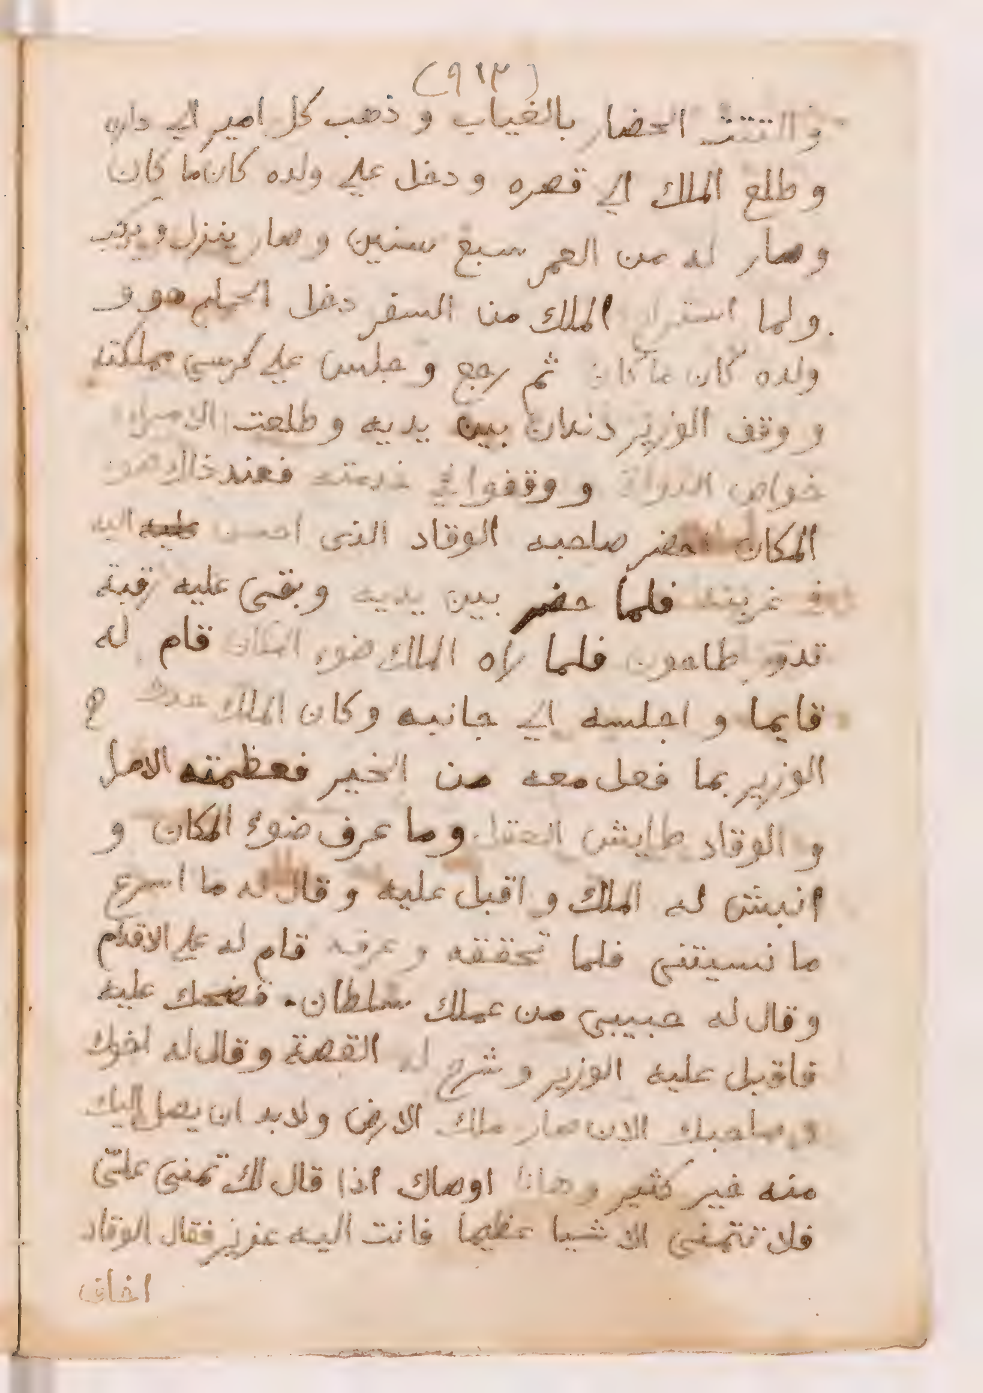 (٩١٣)
والتتت الحضار بالغياب و ذهب كل امير الي داره
و طلع الملك الي قصره و دخل علي ولده كان ما كان
وصار له من العمر سبع سنين و صار ينزل و يركب
ولما استراح الملك من السفر دخل الحمام هو و
ولده كان ما كان ثم رجع و جلس علي كرسي مملكته
و وقف الوزير دندان بين يديه و طلعت الامرا
خواص الدولة و وقفوا في خدمته فعند ذالك ضو
المكان احضر صاحبه الوقاد الذي احسن عليه اليه
في غربته فلما حضر بين يديه و بقى عليه رقبة
تدور طاحون فلما راه الملك ضوء المكان قام له
قايما و اجلسه الي جانبه وكان الملك حدث
الوزير بما فعل معه من الخير فعظمته الامرا
و الوقاد طايش العقل وما عرف ضوء المكان و
انبش له الملك و اقبل عليه و قال له ما اسرع
ما نسيتني فلما تحققه و عرفه قام له علي الاقدام
وقال له حبيبي من عملك سلطان. فضحك عليه
فاقبل عليه الوزير و شرح له القصة و قال له اخوك
و صاحبك الان صار ملك الارض و لابد ان يصل اليك
منه خير كثير وها انا اوصاك اذا قال لك تمنى عليّ
فلا تتمنى الا شيا عظيما فانت اليه عزيز فقال الوقاد
اخاف